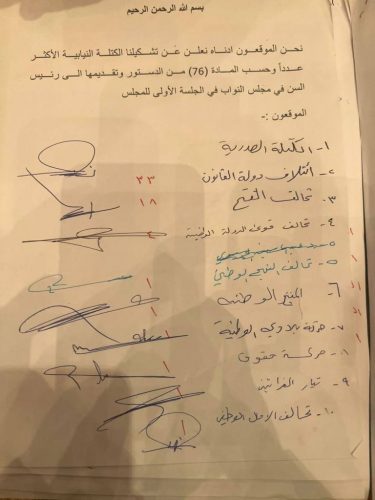 بسم الله الرحمن الرحيم
نحن الموقعون ادناه نعلن عن تشكيلنا الكتلة النيابية الأكثر
عدداً وحسب المادة (76) من الدستور وتقديمها الى رئيس
السن في مجلس النواب في الجلسة الأولى للمجلس
الموقعون :-
١- الكتلة الصدرية
٢- ائتلاف دولة القانون ٣٣
٣- تحالف الفتح ١٨
٤- تحالف قوى الدولة الوطنية ٤
٥- تحالف النهج الوطني ١
٦- الوطنية ١
٧- حركة الوطنية ١
٨- حركة حقوق ١
٩- تيار الفراتين ١
١٠- تحالف الأمل الوطني ١